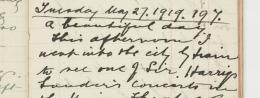 Tuesday May 27. 1919. 197.
A beautiful day.
This afternoon I
went into the city by train
to see one of Sir Harry
Lauder's concerts on